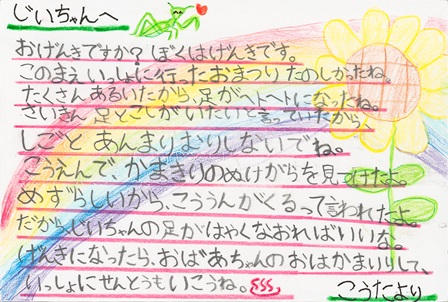 じいちゃんへ
おげんきですか?ぼくはげんきです。
このまえいっしょに行ったおまつりたのしかったね。
たくさんあるいたから、足がヘトヘトになったね。
さいきん足とこしがいたいと言っていたから、
しごとあんまりむりしないでね。
こうえんで、かまきりのぬけがらを見つけたよ。
めずらしいから、こううんがくるって言われたよ。
だから、じいちゃんの足がはやくなおればいいな。
げんきになったら、おばあちゃんのおはかまいりして、
いっしょにせんとうもいこうね。
こうたより